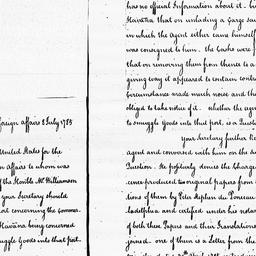 foreign Affairs 8 July 1785
United States for the
n Affairs to whom was
of the Honble Mr. Williamson
your Secretary should
concerning the Commer-
Havana being concerned
uggle Goods into that port.
has no official Information about it. bu
Havana that on unloading a Cargo sai
in which the Agent either came himself
was consigned to him. the casks were f
that on removing them from thence to a
giving way it appeared to contain contra
Circumstance made much noise and the
obliged to take notice of it. whether the agen
to smuggle Goods into that port, is a Questio
your Secretary further Re
agent and conversed with him on the su
Question. He positively denies the Charge
cence produced two original papers from t
tions of them by Peter Stephen du Ponceau
ladelphia and certified under his notar
of both these Papers and their Translations
joined. one of them is a Letter from the